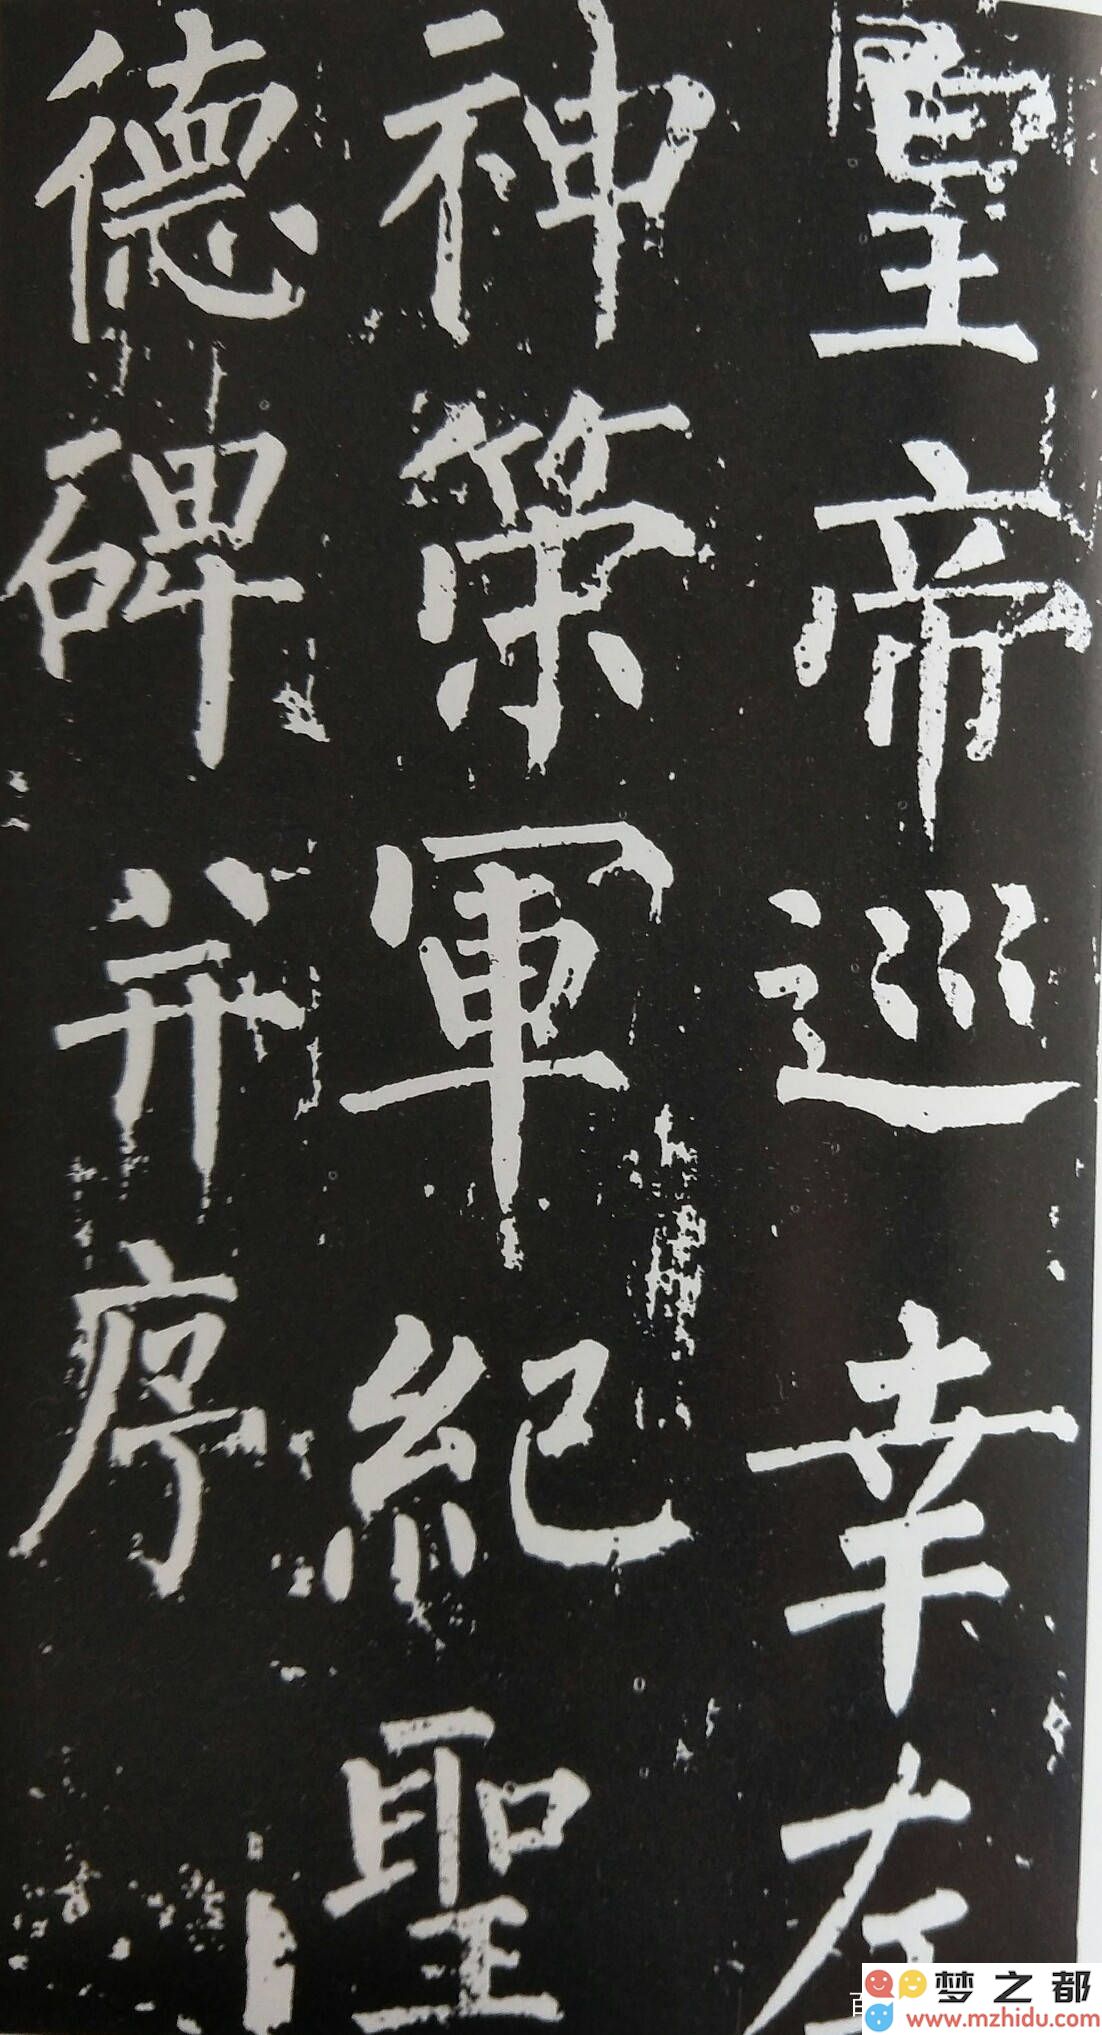 皇帝巡幸左
神策軍紀聖
德碑并序
梦之都
www.mzhidu.com